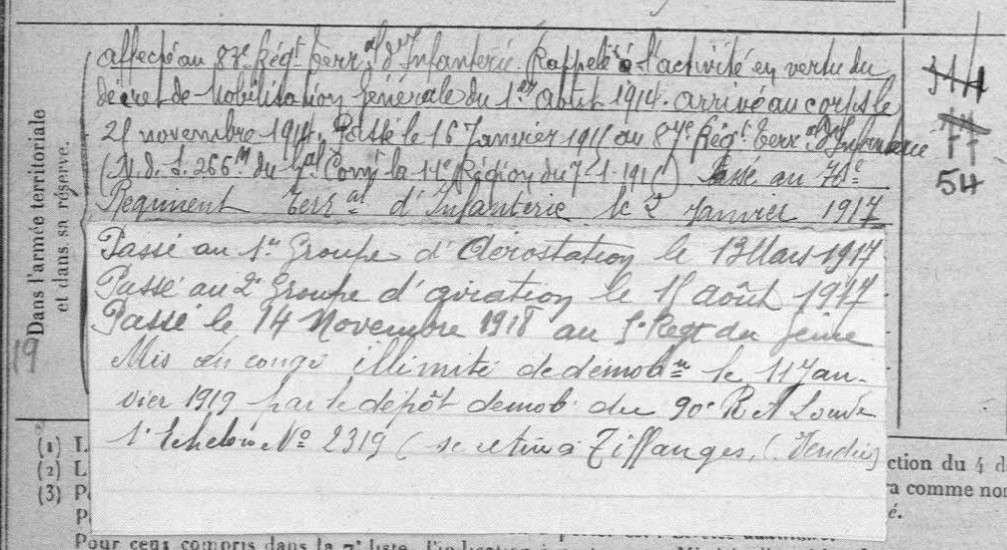 Dans l'armée territoriale
et dans sa réserve.
19
affecté au 83e Régt Terral d'Infanterie. Rappelé à l'activité en vertu du
décret de Mobilisation Générale du 1er Août 1914. arrivé au corps le
21 novembre 1914. Passé le 16 Janvier 1915 au 87e Régt Terral d'Infanterie
du Gal Comt la 14e Région du 7-1-191 Passé au 78e
Régiment Terral d'Infanterie le 2 Janvier 1917
54
Passé au 1er Groupe d'Aérostation le 13 Mars 1917
Passé au 2e Groupe d'aviation le 15 août 1917.
Passé le 14 Novembre 1918 au 5e Regt du Génie
Mis en congé illimité de démobon le 11 Jan-
vier 1919 par le dépôt démob. du 90e R At Lourde
1r Echelon No 2319 (se retire à Tiffauges, (Vendée)
(1) L
(2) L
(3) P
P
ction du 4 d
a comme nor
é.
Pour ceux compris dans la 7e liste, l'indication